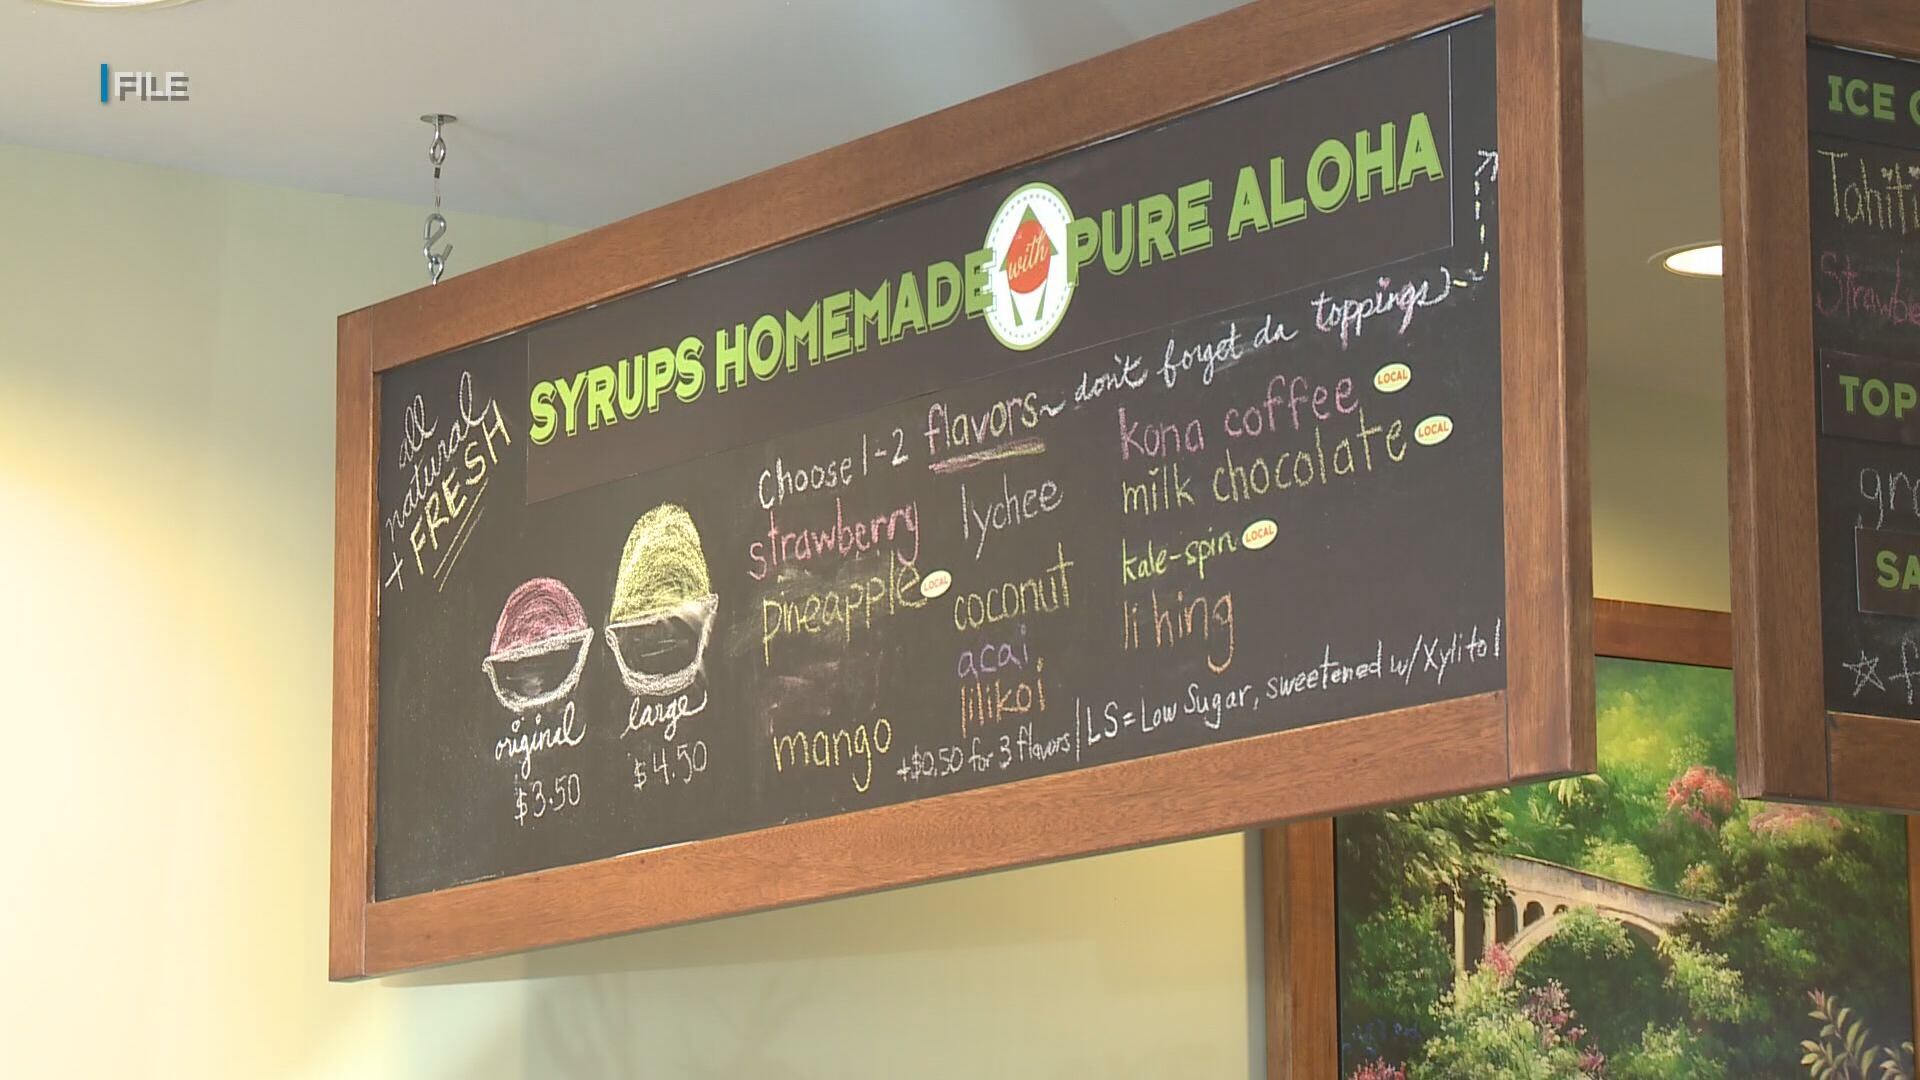 FILE
SYRUPS HOMEMADE with PURE ALOHA
all
natural
+ FRESH
Choose 1-2 flavors~ don't forget da toppings~
strawberry
pineapple LOCAL
mango
lychee
coconut
acai
lilikoi
kona coffee LOCAL
milk chocolate LOCAL
kale-spin LOCAL
li hing
original
$3.50
large
$4.50
+$0.50 for 3 flavors | LS = Low Sugar, sweetened w/ Xylitol
ICE
TOP